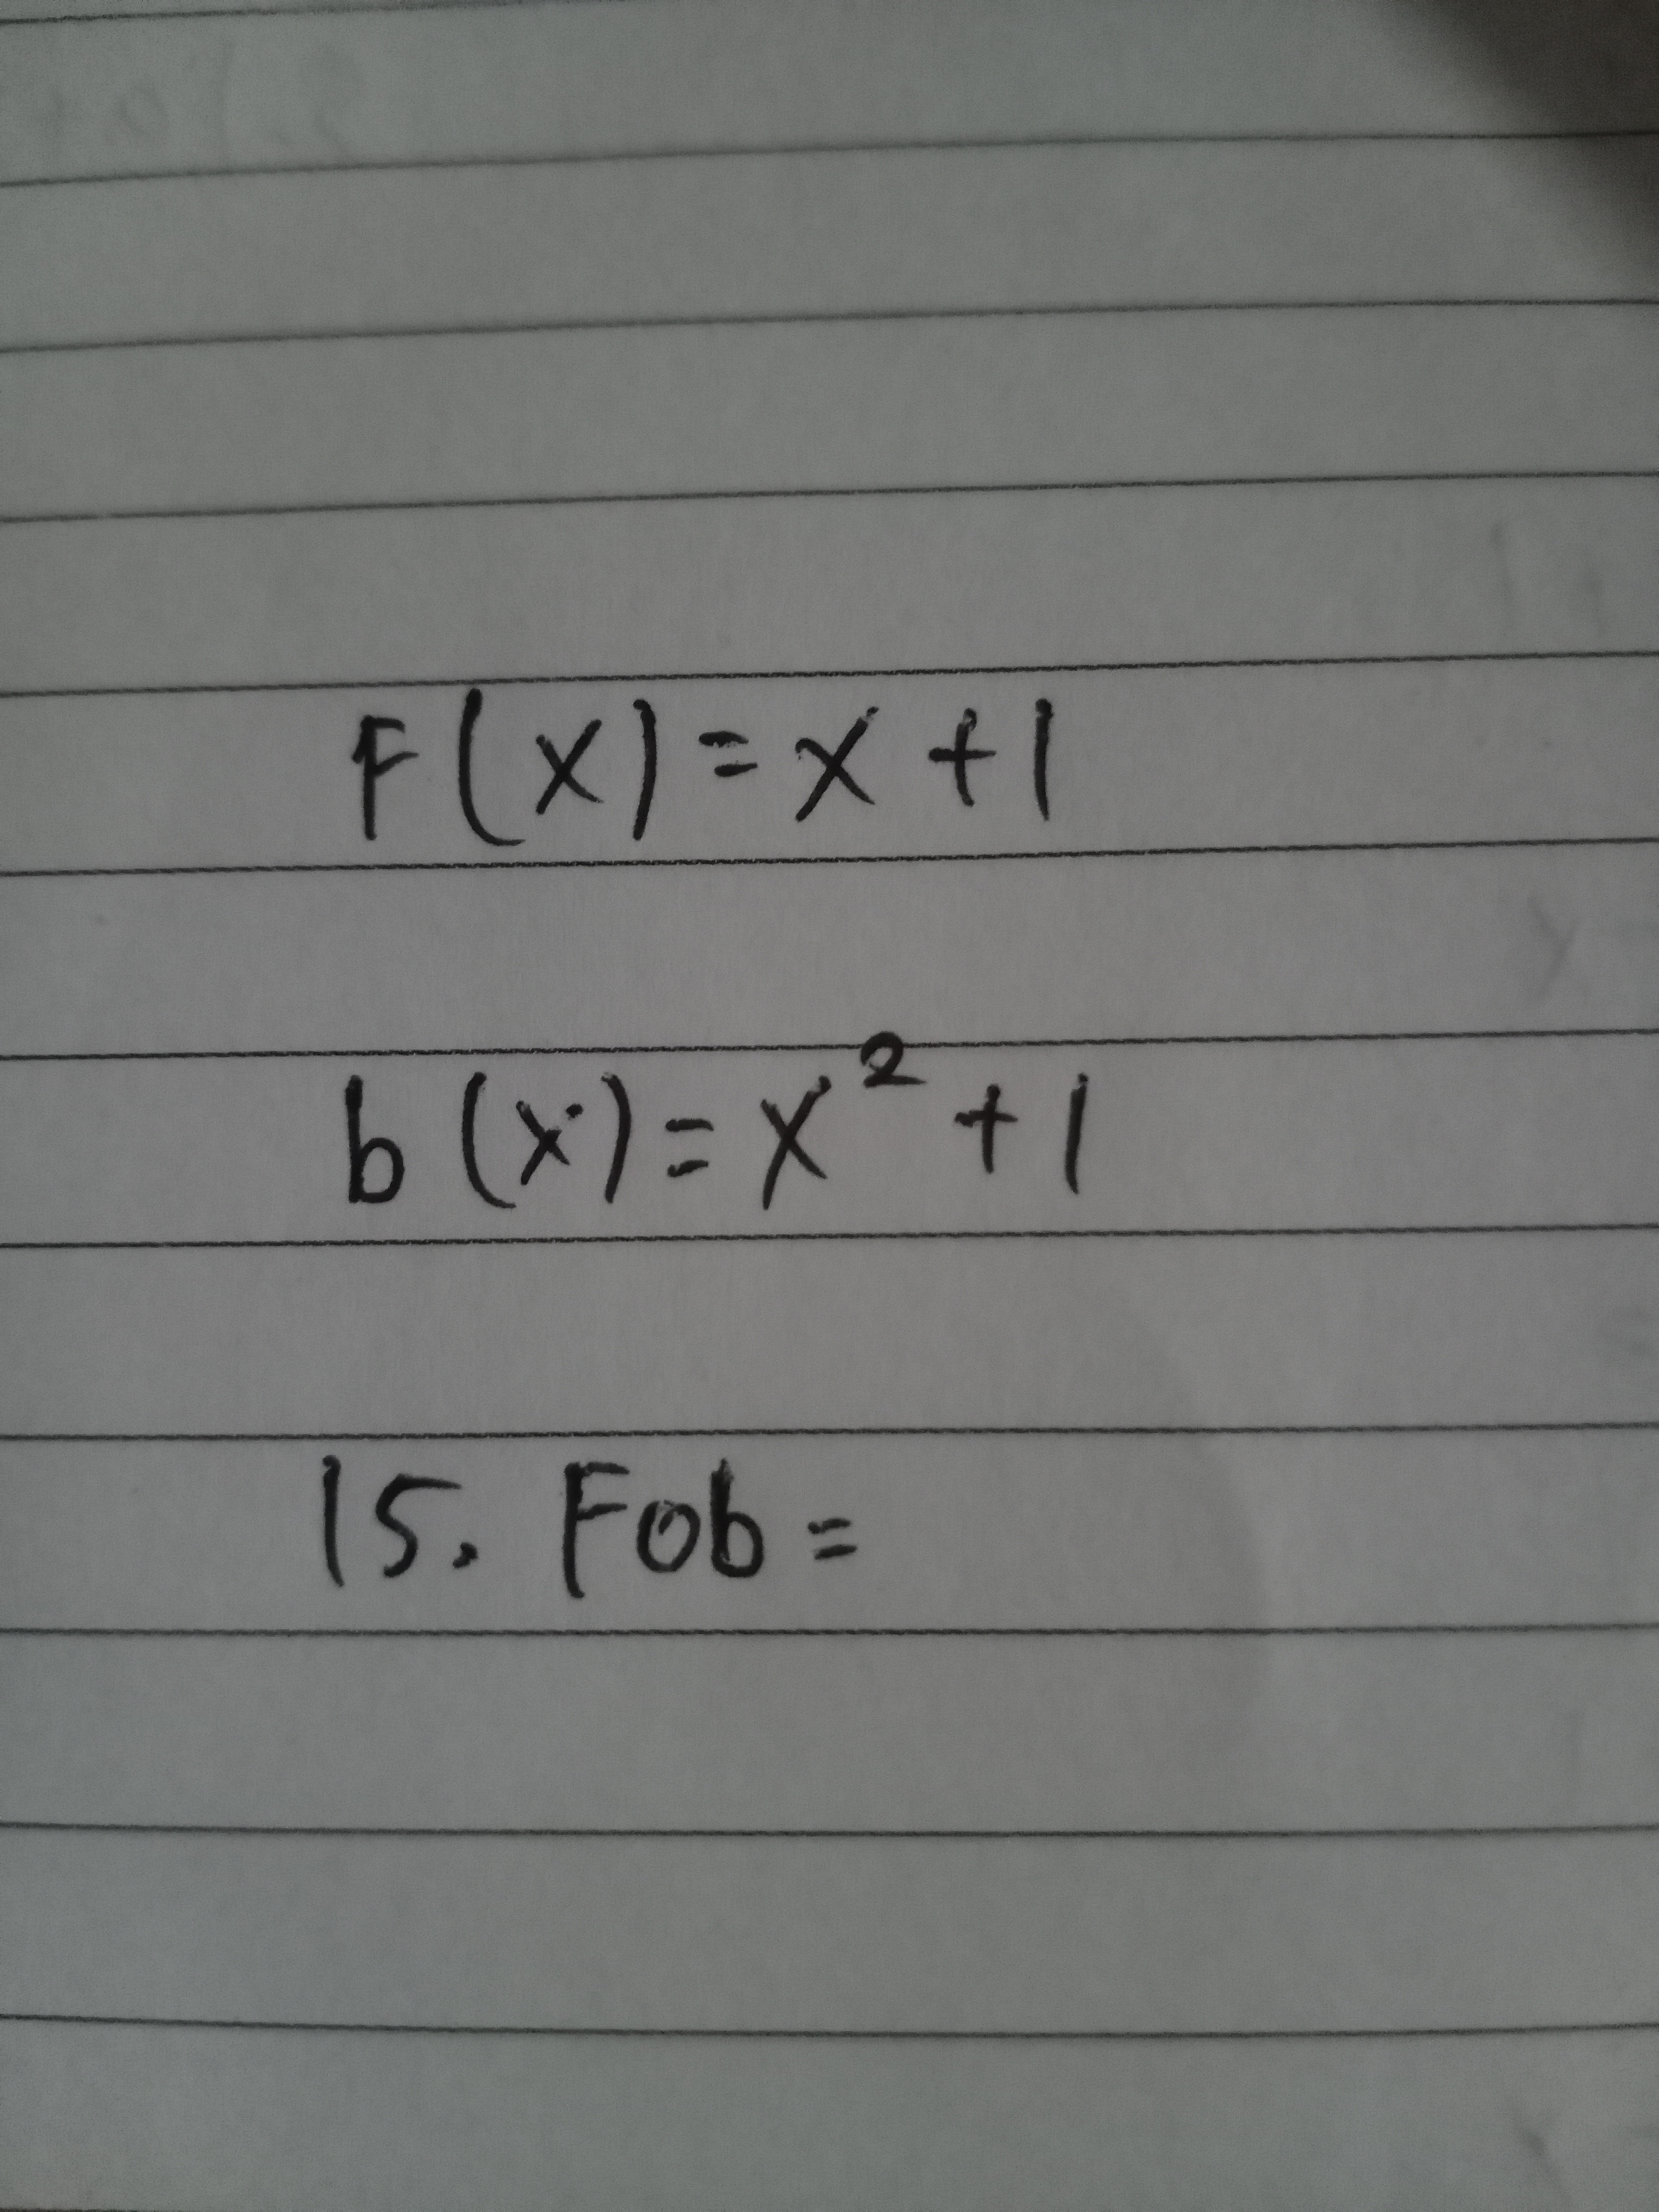 F(x) = x + 1
b(x) = x² + 1
15. Fob =